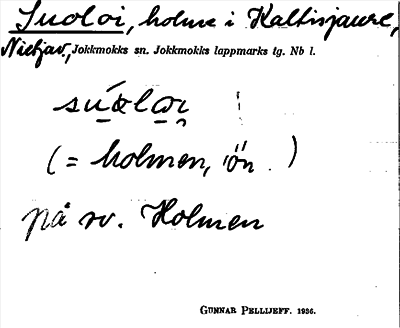 Suoloi, holme i Kaltisjaure,
Nietjav, Jokkmokks sn. Jokkmokks lappmarks tg. Nb l.
súəloi
(= holmen, ön )
på sv. Holmen
GUNNAR PELLIJEFF. 1936.